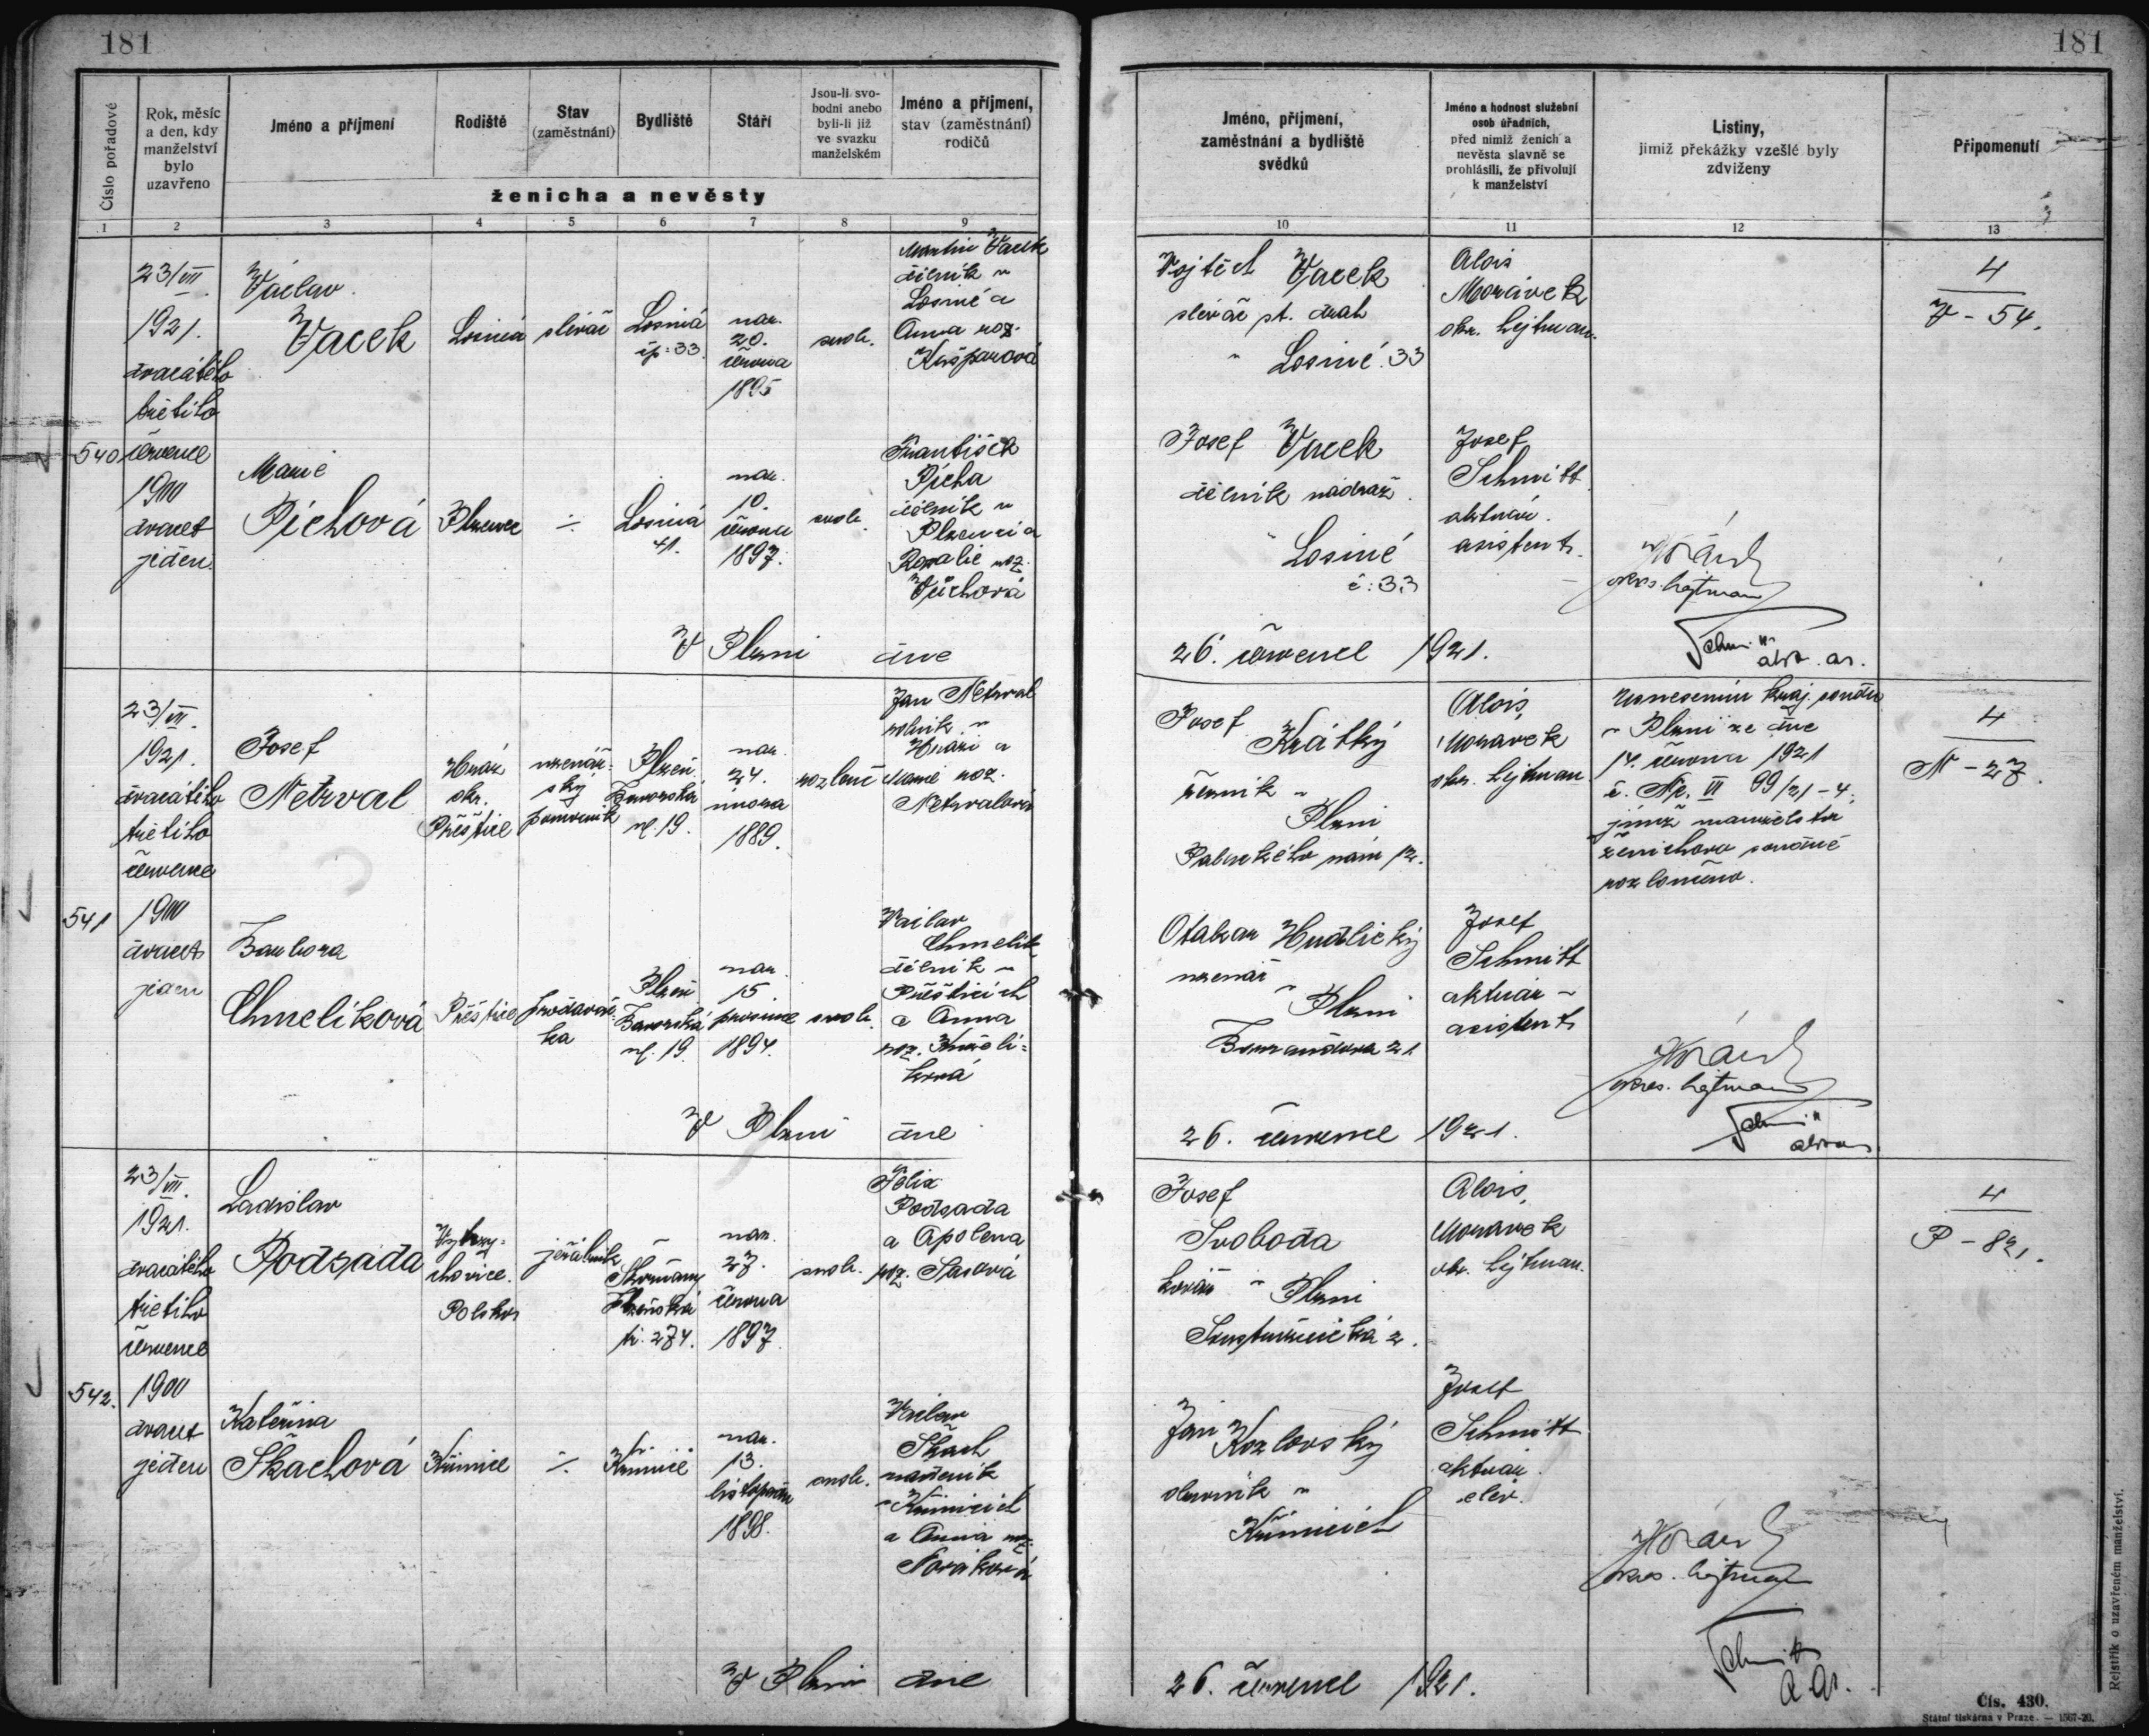 181
181
Číslo pořadové
Rok, měsíc
a den, kdy
manželství
bylo
uzavřeno
Jméno a příjmení
Rodiště
Stav
(zaměstnání)
Bydliště
Stáří
Jsou-li svo-
bodni anebo
byli-li již
ve svazku
manželském
Jméno a příjmení,
stav (zaměstnání)
rodičů
ženicha a nevěsty
Jméno, příjmení,
zaměstnání a bydliště
svědků
Jméno a hodnost služební
osob úřadních,
před nimiž ženich a
nevěsta slavně se
prohlásili, že přivolují
k manželství
Listiny,
jimiž překážky vzešlé byly
zdviženy
Připomenutí
1 2 3 4 5 6 7 8 9 10 11 12 13
540
23/VII
1921.
dvacátého
třetího
července
1900
dvacet
jeden
Václav
Vacek
Losiná
slévač
Losiná
čp: 33.
nar.
20.
června
1895
svob.
Martin Vacek
dělník v
Losiné a
Anna roz.
Kašparová
Marie
Píchová
Plzenec
Losiná
41.
nar.
10.
června
1897.
svob.
František
Pícha
dělník v
Plzenci a
Rosalie roz.
Vojtěch Vacek
slévač st. drah
v Losiné 33
Josef Vacek
dělník nádraž.
v Losiné
č: 33
Alois
Moravek
okr. hejtman.
Josef
Schmitt
aktuár.
asistent.
4
V - 54.
okres. hejtman
V Plzni dne 26. července 1921.
541
23/VII.
1921.
dvacátého
třetího
července
1900
dvacet
jeden
Josef
Netrval
okr.
Přeštice
uzenář-
ský
pomocník
Plzeň
Bavorská
ul. 19.
nar.
24.
února
1889.
rozlouč
Jan Netrval
rolník v
a
Marie roz.
Netrvalová
Barbora
Chmelíková
Přeštice
prodavač-
ka
Plzeň
Bavorská
ul. 19.
nar.
15.
prosince
1894.
svob.
Václav
Chmelík
dělník v
Přešticích
a Anna
roz.
Josef
Krátký
řezník v
Plzni
Palackého nám 12.
Otakar Hudlický
uzenář
v Plzni
21
Alois
Moravek
okr. hejtman
Josef
Schmitt
aktuár-
asistent
Usnesením kraj. soudu
v Plzni ze dne
14. června 1921
č. Nc. VI 99/21-4,
jímž manželství
ženichovo soudně
rozloučeno.
4
N - 27.
okres. hejtman
V Plzni dne 26. července 1921.
542.
23/VII.
1921.
dvacátého
třetího
července
1900
dvacet
jeden
Ladislav
Podsada
Polsko
jeřábník
Skvrňany
Plzeňská
tř. 274.
nar.
27.
června
1897
svob.
Felix
Podsada
a Apolena
roz. Sasová
Kateřina
Škachová
Křimice
Křimice
nar.
13.
listopadu
1898.
svob.
Václav
Škach
nádeník
v Křimicích
a Anna roz.
Nováková
Josef
Svoboda
kovář v Plzni
2.
Jan Kozlovský
v
Křimicích
Alois
Moravek
okr. hejtman.
Josef
Schmitt
aktuár.
elév.
4
P - 821.
okres. hejtman
V Plzni dne 26. července 1921.
Rejstřík o uzavřeném manželství.
Čís. 430.
Státní tiskárna v Praze. — 1567-20.